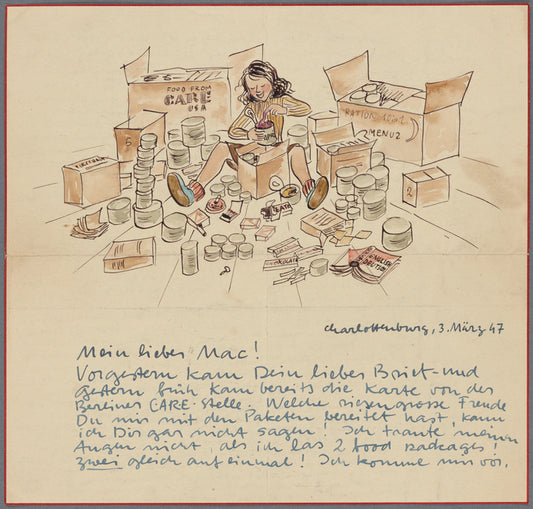 FOOD FROM
CARE
USA
RATION
MENU 2
5
2
Charlottenburg, 3. März 47
Mein lieber Mac!
Vorgestern kam Dein lieber Brief und
gestern früh kam bereits die Karte von der
Berliner CARE-Stelle. Welche riesengrosse Freude
Du mir mit den Paketen bereitet hast, kann
ich Dir gar nicht sagen! Ich traute meinen
Augen nicht, als ich las 2 food packages!
zwei gleich auf einmal! Ich komme mir vor,